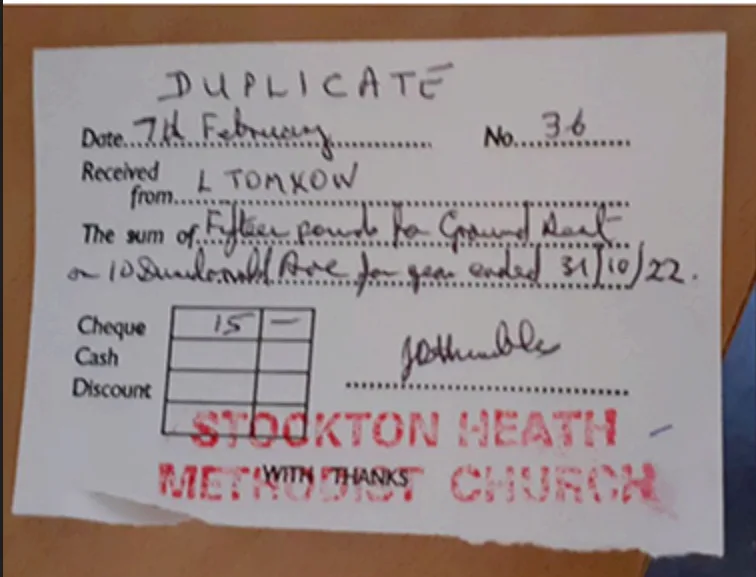 DUPLICATE
Date 7th February No. 36
Received
from L TOMKOW
The sum of Fifteen pounds for Ground Rent
on 10 Dundonald Ave for year ended 31/10/22.
Cheque 15 —
Cash
Discount
JDHumble
STOCKTON HEATH
WITH THANKS
METHODIST CHURCH